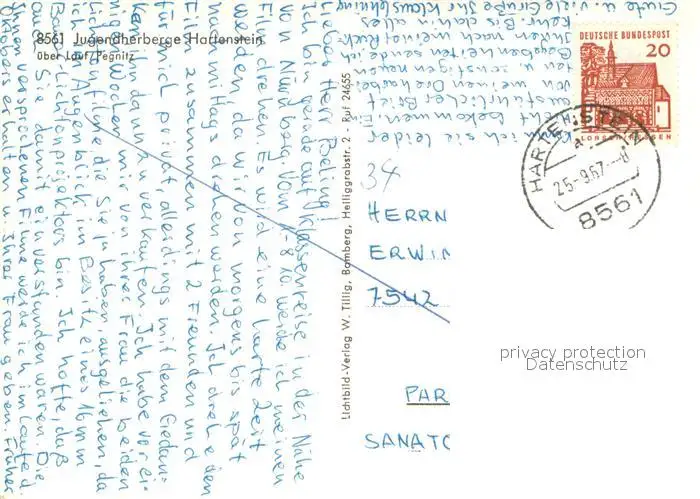 8561 Jugendherberge Hartenstein
über Lauf / Pegnitz
Lieber Herr
Ich bin gerade auf Klassenreise in der Nähe
von Nürnberg. Vom 1.-8.10. werde ich meinen
Film drehen. Es wird eine harte Zeit
werden, da wir von morgens bis spät
nachmittags drehen werden. Ich drehe den
Film zusammen mit 2 Freunden und
für mich privat, allerdings mit dem Gedan-
ken, ihn dann zu verkaufen. Ich habe vor ei-
nigen Wochen mir von ihrer Frau die beiden
Filme die Sie ja haben, ausgeliehen, da
ich im Augenblick im Besitz eines 16mm
Projektors bin. Ich hoffe, daß
Sie damit einverstanden waren. Die
schon versprochenen Filme werde ich im Laufe d.
Oktobers erhalten u. Ihrer Frau geben. Früher
kann ich sie leider
nicht bekommen. Ein
ausführlicher Brief
von meinen Dreharbei-
ten u. sonstigen neuen
Begebenheiten sende ich
Ihnen nach meiner Rück-
kehr. Bis dahin alles
Gute u. viele Grüße Ihr
Lichtbild-Verlag W. Tillig, Bamberg, Heiliggrabstr. 2 - Ruf 24655
DEUTSCHE BUNDESPOST
20
HARTENSTEIN
25.-9.67.-8
8561
34
HERRN
ERWIN
7542
PAR
SANATO
privacy protection
Datenschutz